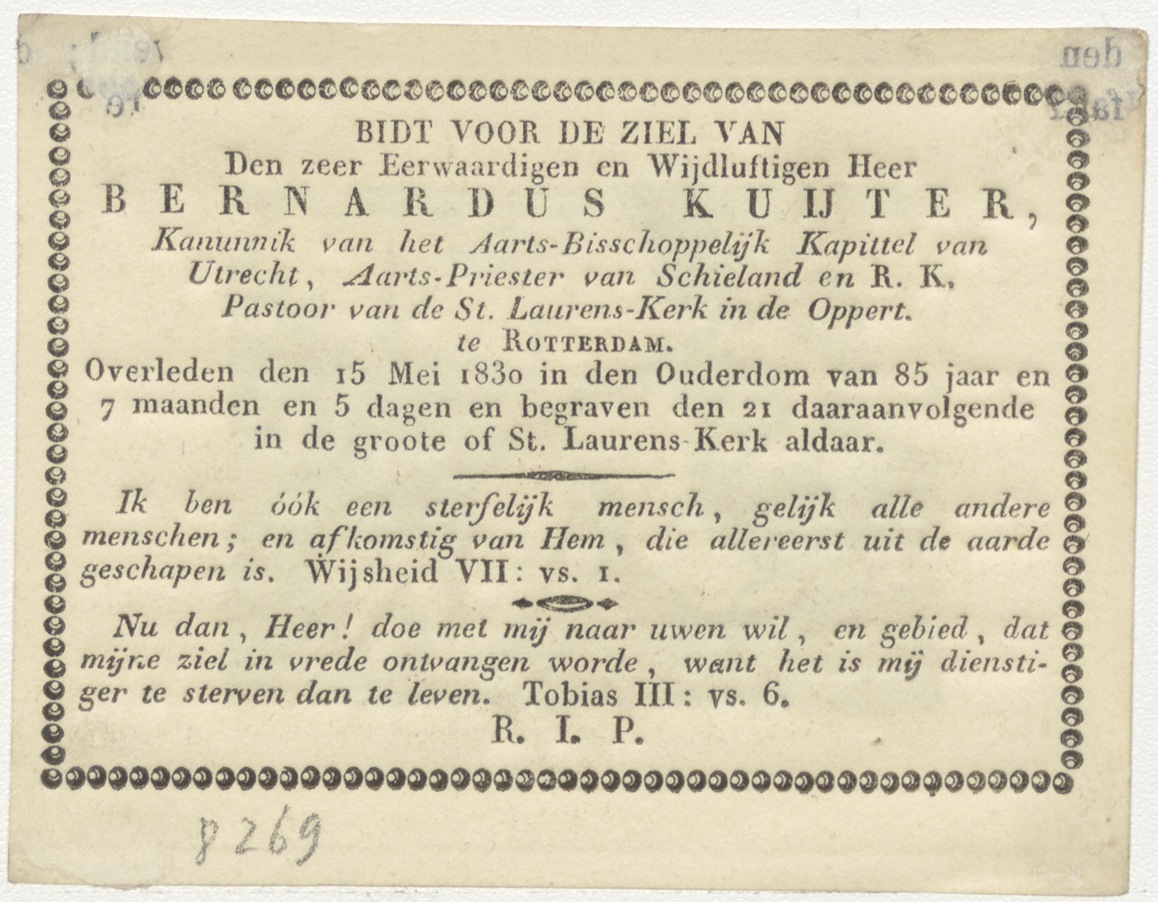 BIDT VOOR DE ZIEL VAN
Den zeer Eerwaardigen en Wijdluftigen Heer
BERNARDUS KUIJTER,
Kanunnik van het Aarts-Bisschoppelijk Kapittel van
Utrecht, Aarts-Priester van Schieland en R. K.
Pastoor van de St. Laurens-Kerk in de Oppert.
te ROTTERDAM.
Overleden den 15 Mei 1830 in den Ouderdom van 85 jaar en
7 maanden en 5 dagen en begraven den 21 daaraanvolgende
in de groote of St. Laurens-Kerk aldaar.
Ik ben óók een sterfelijk mensch, gelijk alle andere
menschen; en afkomstig van Hem, die allereerst uit de aarde
geschapen is. Wijsheid VII: vs. 1.
Nu dan, Heer! doe met mij naar uwen wil, en gebied, dat
mijne ziel in vrede ontvangen worde, want het is mij diensti-
ger te sterven dan te leven. Tobias III: vs. 6.
R. I. P.
8269